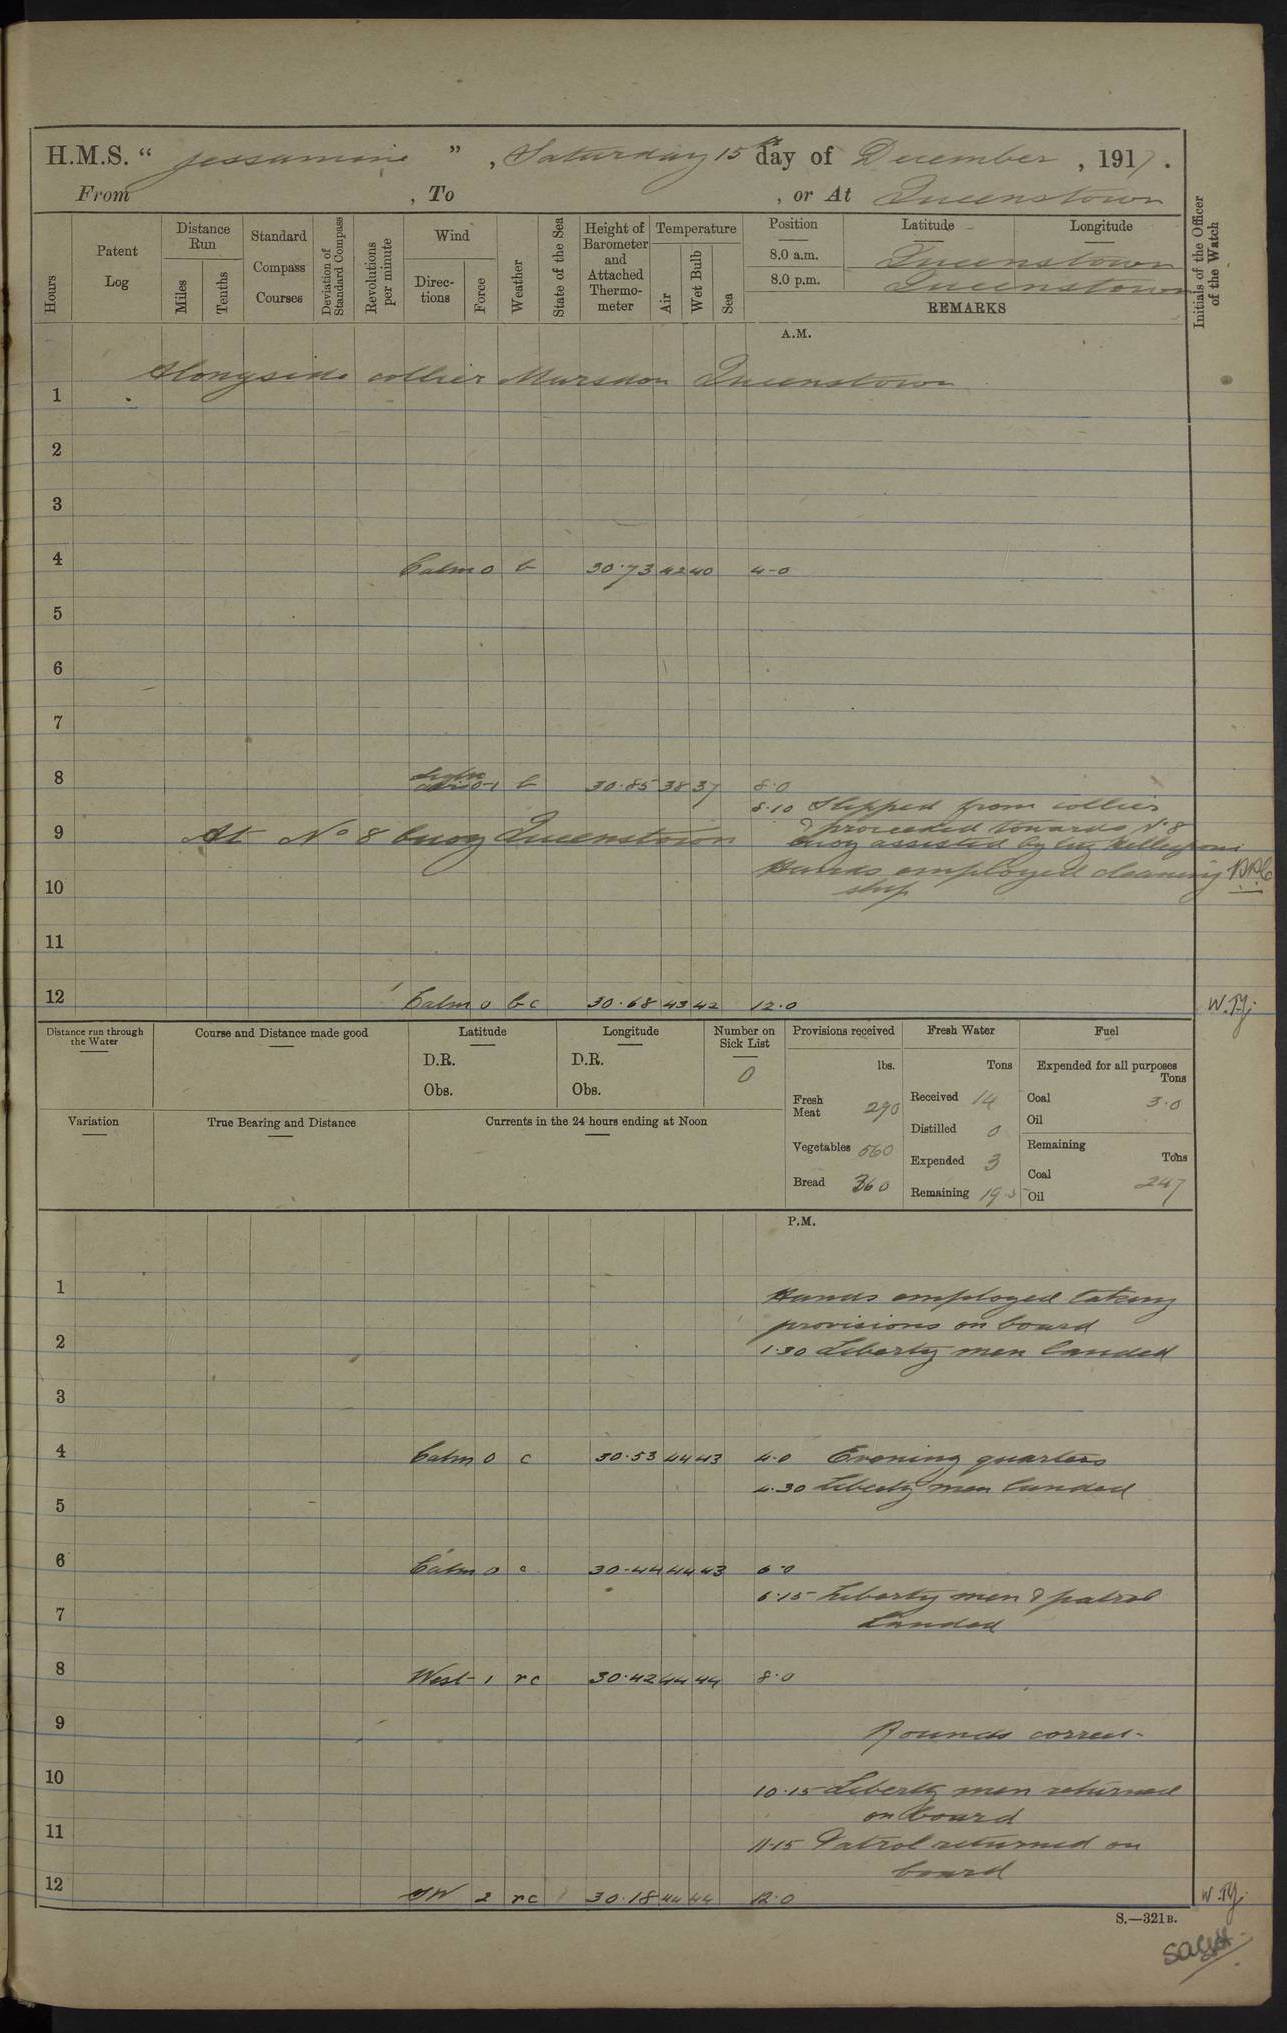 H.M.S. “ Jessamine ” , Saturday 15th day of December , 1917.
From , To , or At Queenstown
Hours
Patent Log
Distance Run
Miles
Tenths
Standard Compass Courses
Deviation of Standard Compass
Revolutions per minute
Wind
Direc- tions
Force
Weather
State of the Sea
Height of Barometer and Attached Thermo- meter
Temperature
Air
Wet Bulb
Sea
Position Latitude Longitude
8.0 a.m. Queenstown
8.0 p.m. Queenstown
REMARKS
Initials of the Officer of the Watch
A.M.
Alongside collier Queenstown
1
2
3
4 Calm 0 b 30.73 42 40 4-0
5
6
7
8 0-1 b 30.85 38 37 8.0
8.10 Slipped from collier
& proceeded towards No 8
9 At No 8 buoy Queenstown buoy assisted by tug
Hands employed cleaning
10 ship
11
12 Calm 0 bc 30.68 43 42 12.0
Distance run through the Water
Course and Distance made good
Latitude
D.R.
Obs.
Longitude
D.R.
Obs.
Number on Sick List
0
Variation
True Bearing and Distance
Currents in the 24 hours ending at Noon
Provisions received
lbs.
Fresh Meat 290
Vegetables 560
Bread 360
Fresh Water
Tons
Received 14
Distilled 0
Expended 3
Remaining 19.5
Fuel
Expended for all purposes
Tons
Coal 3.0
Oil
Remaining
Tons
Coal 247
Oil
P.M.
1 Hands employed taking
provisions on board
2 1.30 Liberty men landed
3
4 Calm 0 c 30.53 44 43 4.0 Evening quarters
4.30 Liberty men landed
5
6 Calm 0 c 30.44 44 43 6.0
6.15 Liberty men & patrol
7 landed
8 West 1 rc 30.42 44 44 8.0
9 Rounds correct
10 10.15 Liberty men returned
on board
11 11.15 Patrol returned on
board
12 SW 2 rc 30.18 44 44 12.0
S.—321B.